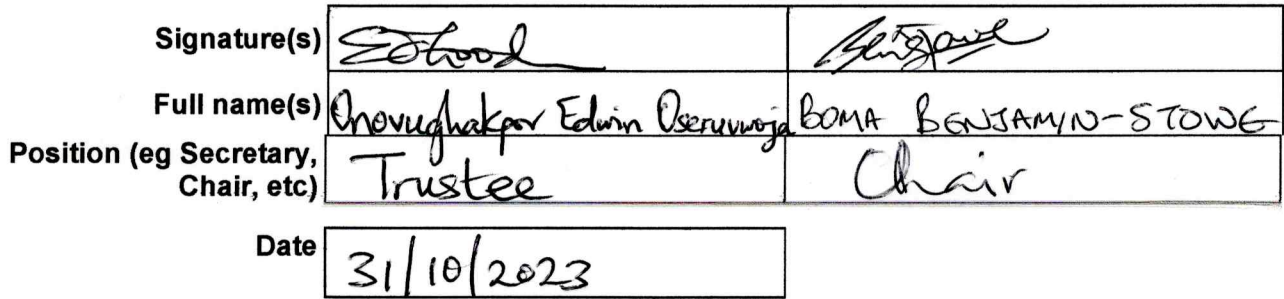 Signature(s)
Full name(s) Onovughakpor Edwin Oseruvwoja BOMA BENJAMIN-STOWE
Position (eg Secretary,
Chair, etc) Trustee Chair
Date 31/10/2023